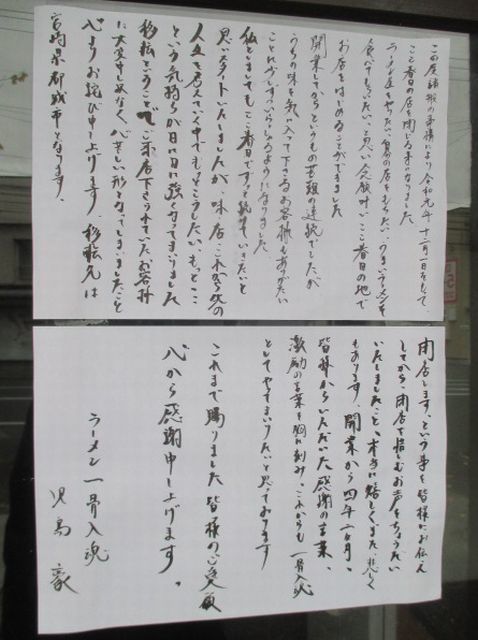 この度諸般の事情により令和元年十二月一日をもって、
ここ春日の店を閉じる事になりました
ラーメン屋をやりたい、自分の店をもちたい、うまいラーメンを
食べてもらいたいと思い念願叶い、ここ春日の地で
お店をはじめることができました
開業してからというもの苦難の連続でしたが
うちの味を気に入って下さるお客様もありがたい
ことに少しずついらっしゃるようになりました
私としましてもここ春日でずっと続けていきたいと
思いスタートいたしましたが、味、店、これから先の
人生を考えていく中でもっとこうしたい、もっとここ
という気持ちが日に日に強くなってまいりました
移転ということでご来店下さっていたお客様
に大変申し訳なく心苦しい形となってしまいましたこと
心よりお詫び申し上げます。移転先は
宮崎県都城市となります。
閉店します、という事を皆様にお伝え
してから、閉店を惜しむお声をちょうだい
いたしましたこと、本当に嬉しくもまた悲しく
もあります、開業から四年二ヶ月、
皆様からいただいた感謝の言葉、
激励の言葉を胸に刻み、これからも一骨入魂
としてやってまいりたいと思っております
これまで賜りました皆様のご愛顧
心から感謝申し上げます。
ラーメン一骨入魂
児島 豪